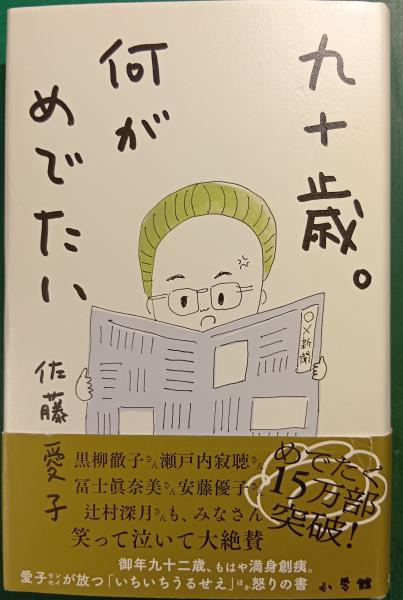 九十歳。
何が
めでたい
佐藤愛子
○×新聞
黒柳徹子さん瀬戸内寂聴さん
冨士眞奈美さん安藤優子さん
辻村深月さんも、みなさん
笑って泣いて大絶賛
めでたく
15万部
突破!
御年九十二歳、もはや満身創痍。
愛子センセイが放つ「いちいちうるせえ」ほか怒りの書
小学館